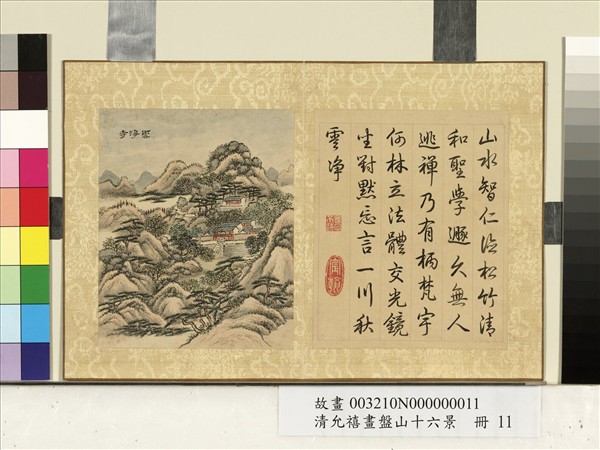 雲淨寺
山水智仁松竹清
和聖學遯久無人
逃禪乃有柄梵宇
何林立法體交光鏡
坐對默忘言一川秋
雲淨
故畫 003210N000000011
清允禧畫盤山十六景 冊 11